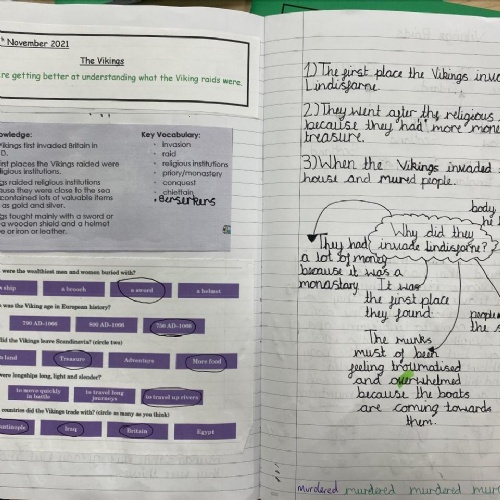 November 2021
The Vikings
re getting better at understanding what the Viking raids were.
owledge:
Vikings first invaded Britain in
D.
irst places the Vikings raided were
ligious institutions.
gs raided religious institutions
use they were close to the sea
contained lots of valuable items
as gold and silver.
gs fought mainly with a sword or
a wooden shield and a helmet
e or iron or leather.
Key Vocabulary:
- invasion
- raid
- religious institutions
- priory/monastery
- conquest
- chieftain
Berserkers
were the wealthiest men and women buried with?
a ship
a brooch
a sword
a helmet
was the Viking age in European history?
700 AD-1066
800 AD-1066
750 AD-1066
did the Vikings leave Scandinavia? (circle two)
land
Treasure
Adventure
More food
were longships long, light and slender?
to move quickly in battle
to travel long journeys
to travel up rivers
countries did the Vikings trade with? (circle as many as you think)
antinople
Iraq
Britain
Egypt
1) The first place the Vikings inva
Lindisfarne
2) They went after the religious
because they had more mone
treasure.
3) When the Vikings invaded
house and mured people.
body
he
Why did they
invade Lindisfarne?
They had
a lot of money
because it was a
monastary It was
the first place
they found.
people
the s
The munks
must of been
feeling traumatised
and overwhelmed
because the boats
are coming towards
them.
murdered murdered murdered mur